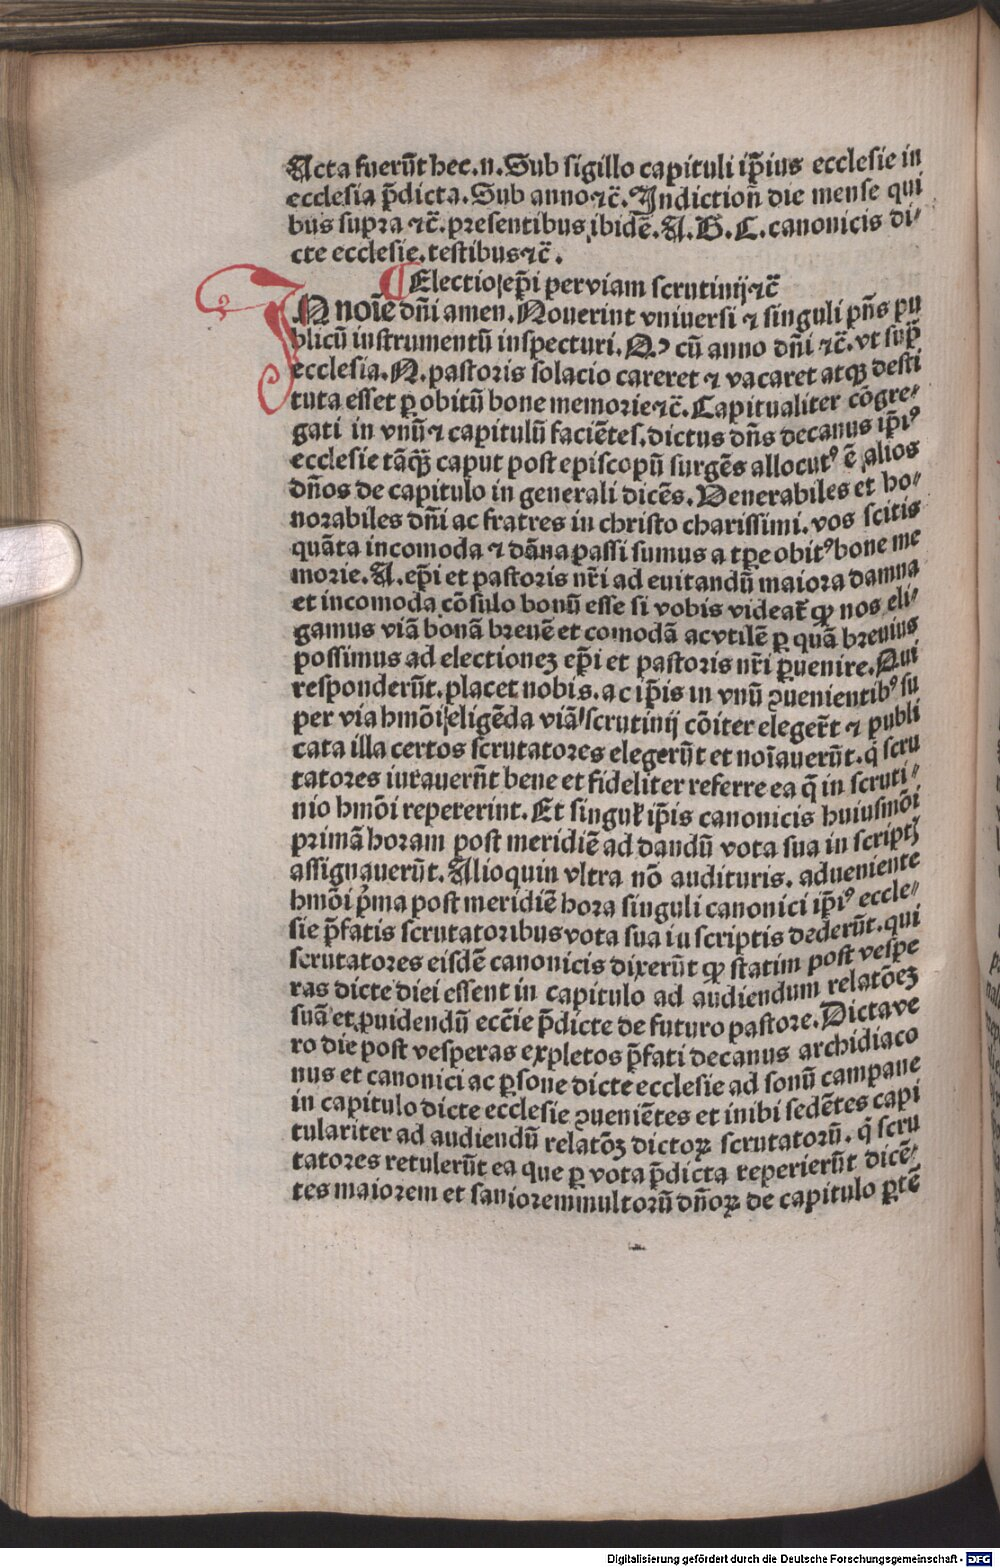 Acta fuerūt hec.n.Sub sigillo capituli ip̄ius ecclesie in
ecclesia p̄dicta.Sub anno ⁊c̄.Indictiōn die mense qui
bus supra ⁊c̄.presentibus ibidē.A.B.C.canonicis di⸗
cte ecclesie.testibus ⁊c̄.
¶ Electio ep̄i per viam scrutinij ⁊c̄
IN noīe dn̄i amen.Nouerint vniuersi ⁊ singuli pn̄s pu
blicū instrumentū inspecturi.Qꝫ cū anno dn̄i ⁊c̄.vt supͣ
ecclesia.N.pastoris solacio careret ⁊ vacaret atqꝫ desti
tuta esset ꝑ obitū bone memorie ⁊c̄.Capitualiter cōgre⸗
gati in vnū ⁊ capitulū faciētes.dictus dn̄s decanus ip̄iꝰ
ecclesie tāqͣꝫ caput post episcopū surgēs allocutꝰ ē alios
dn̄os de capitulo in generali dicēs.Venerabiles et ho⸗
norabiles dn̄i ac fratres in christo charissimi.vos scitis
quāta incomoda ⁊ dāna passi sumus a tꝑe obitꝰ bone me
morie.A.ep̄i et pastoris nr̄i ad euitandū maiora damna
et incomoda cōsulo bonū esse si vobis videat̄ ꝙ nos eli⸗
gamus viā bonā breuē et comodā ac vtilē ꝑ quā breuius
possimus ad electionez ep̄i et pastoris nr̄i ꝑuenire.Qui
responderūt.placet nobis.ac ip̄is in vnū ꝯuenientibꝰ su
per via hmōi eligēda viā scrutinij cōiter elegert̄ ⁊ publi
cata illa certos scrutatores elegerūt et noīauerūt.q̇ scru
tatores iurauerūt bene et fideliter referre ea q̄ in scruti⸗
nio hmōi repererint.Et singuł ip̄is canonicis huiusmōi
primā horam post meridiē ad dandū vota sua in scriptꝭ
assignauerūt.Alioquin vltra nō audituris.adueniente
hmōi pͥma post meridiē hora singuli canonici ip̄iꝰ eccle⸗
sie p̄fatis scrutatoribus vota sua in scriptis dederūt.qui
scrutatores eisdē canonicis dixerūt ꝙ statim post vespe
ras dicte diei essent in capitulo ad audiendum relatōez
suā et ꝓuidendū ecc̄ie p̄dicte de futuro pastore.Dicta ve
ro die post vesperas expletos p̄fati decanus archidiaco
nus et canonici ac ꝑsone dicte ecclesie ad sonū campane
in capitulo dicte ecclesie ꝯueniētes et inibi sedētes capi
tulariter ad audiendū relatōꝫ dictoꝝ scrutatorū.q̇ scru
tatores retulerūt ea que ꝑ vota p̄dicta reperierūt dicē⸗
tes maiorem et saniorem multorū dn̄oꝝ de capitulo ꝑtē
Digitalisierung gefördert durch die Deutsche Forschungsgemeinschaft - DFG